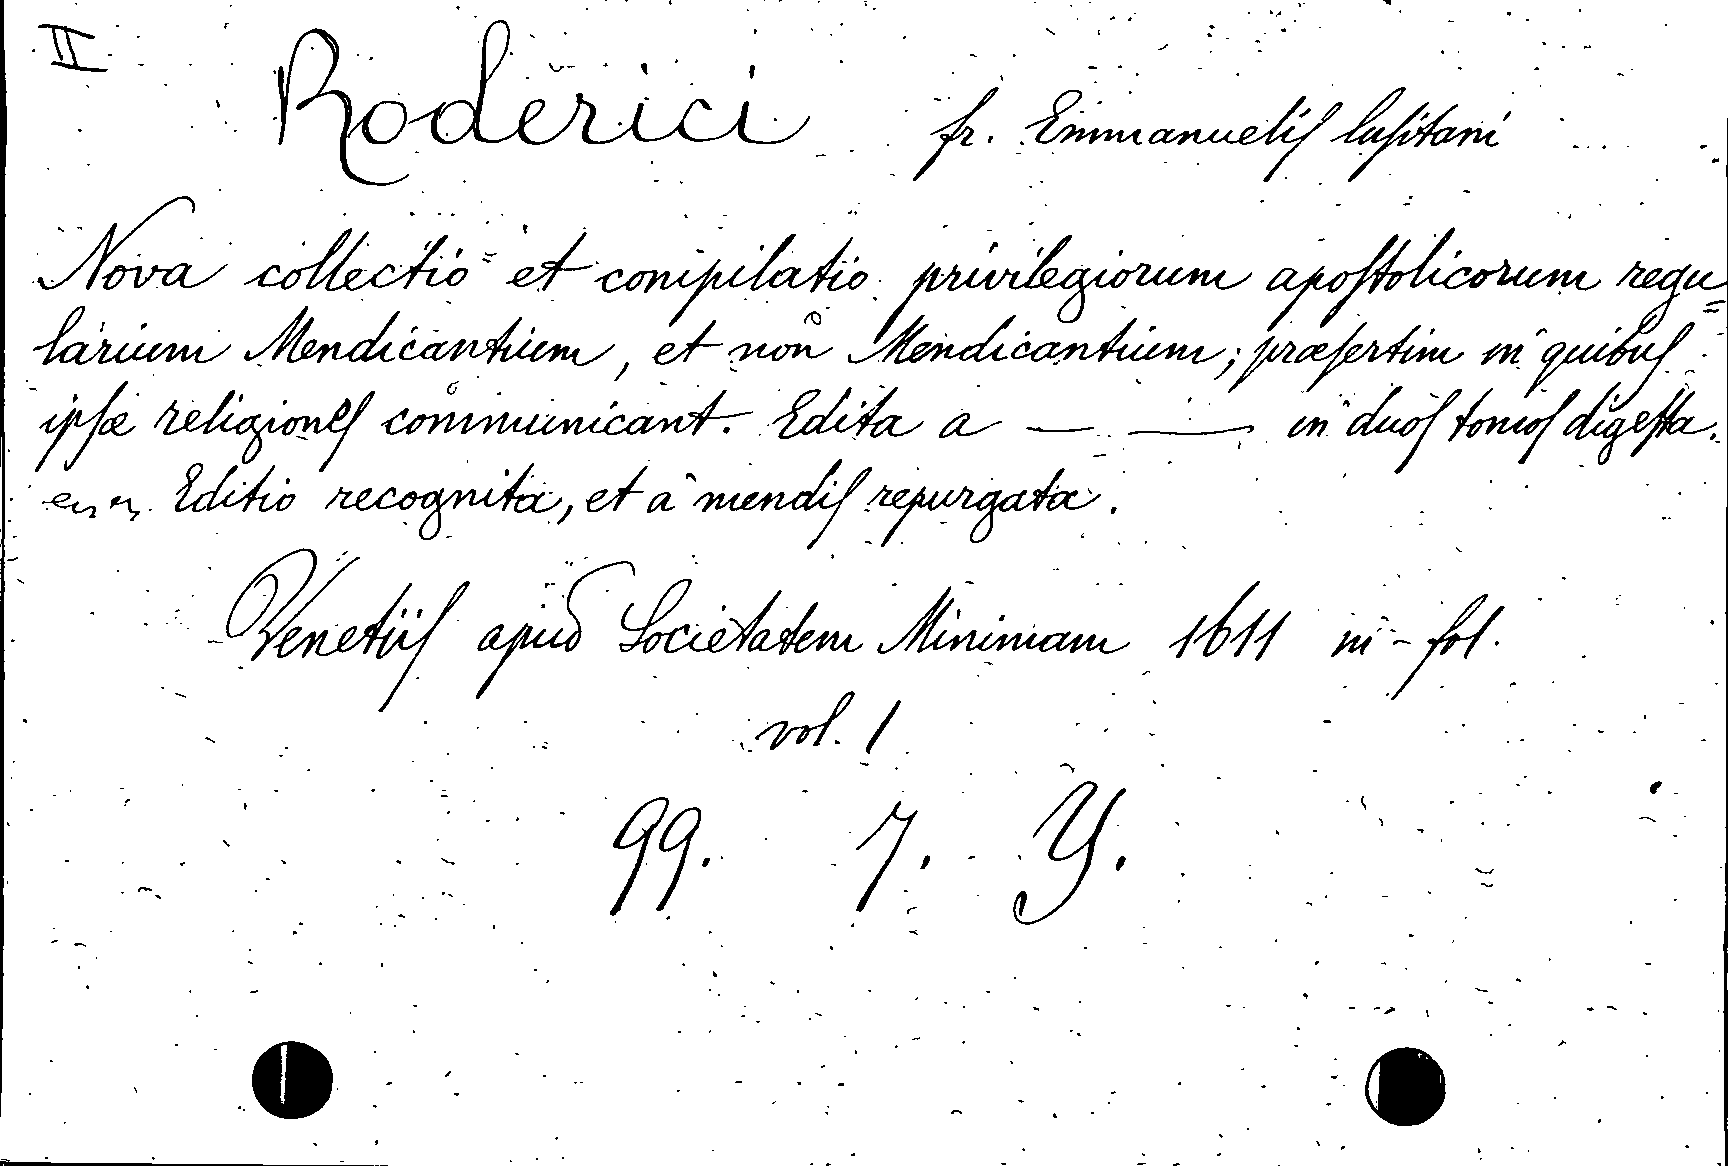 II
Roderici fr. Emmanuelis lusitani
Nova collectio et compilatio privilegiorum apostolicorum regu=
larium Mendicantium, et non Mendicantium; præsertim in quibus
ipsæ religiones communicant. Edita a — — in duos tomos digesta.
Editio recognita, et a mendis repurgata.
Venetiis apud Societatem Minimam 1611 in-fol.
vol. 1
99. 7. Y.